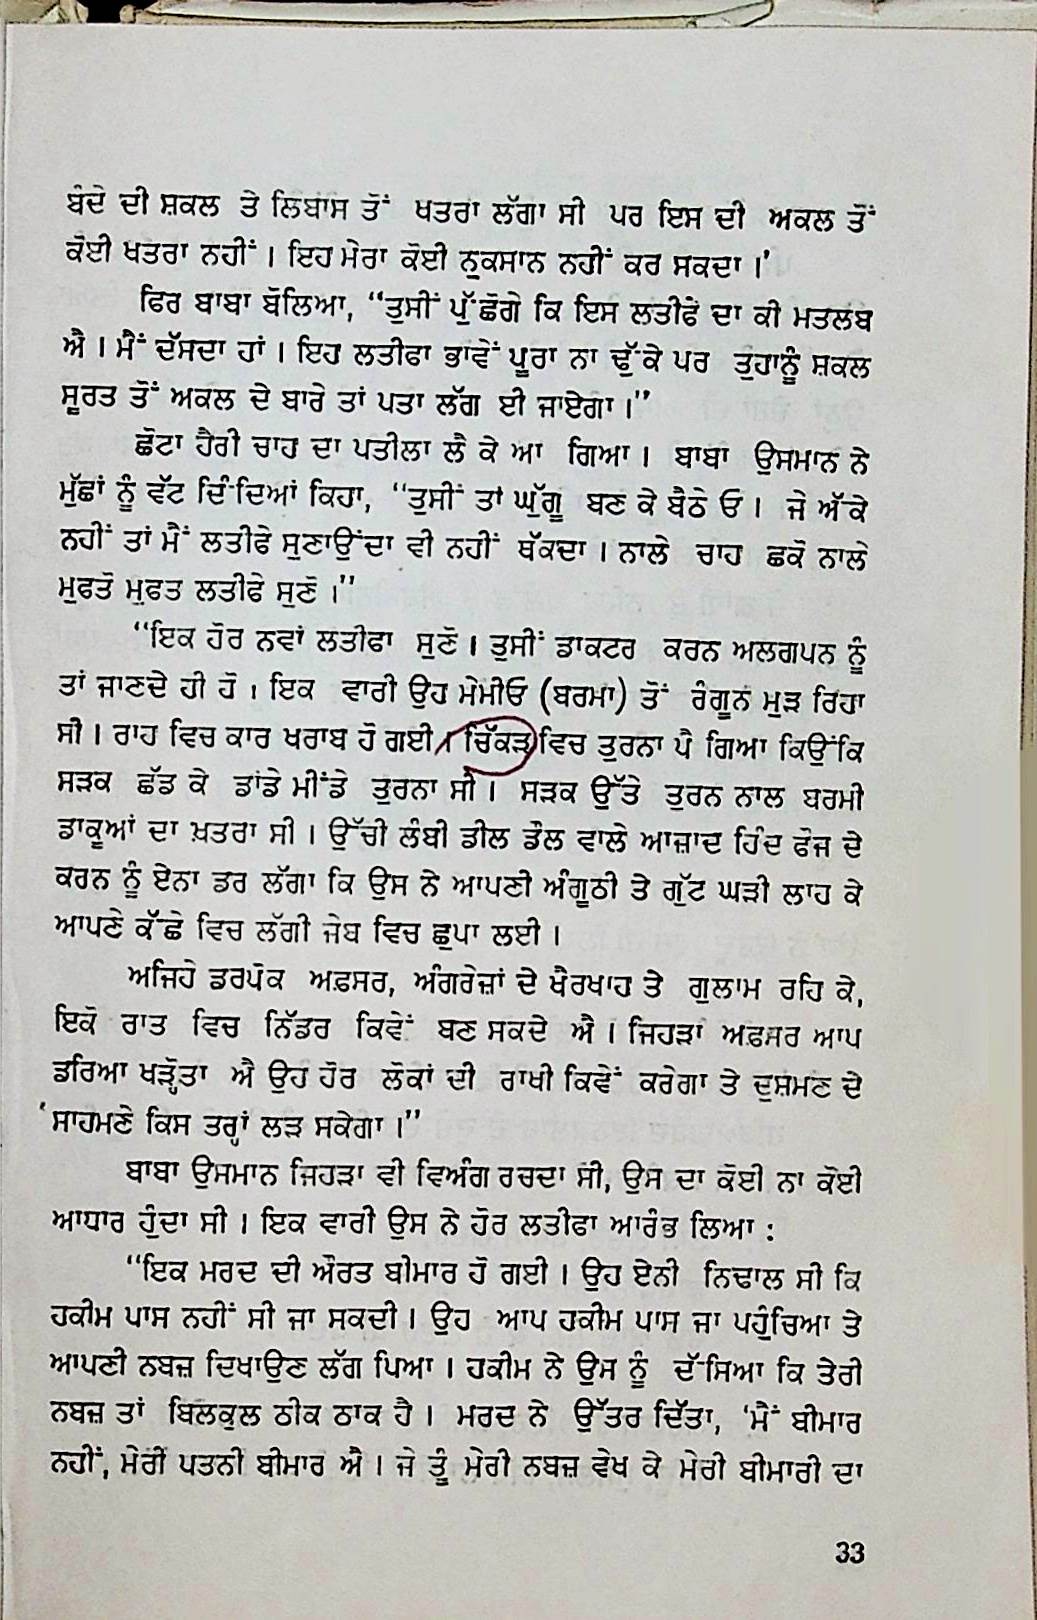 ਬੰਦੇ ਦੀ ਸ਼ਕਲ ਤੇ ਲਿਬਾਸ ਤੋਂ ਖਤਰਾ ਲੱਗਾ ਸੀ ਪਰ ਇਸ ਦੀ ਅਕਲ ਤੋਂ
ਕੋਈ ਖਤਰਾ ਨਹੀਂ । ਇਹ ਮੇਰਾ ਕੋਈ ਨੁਕਸਾਨ ਨਹੀਂ ਕਰ ਸਕਦਾ ।'
ਫਿਰ ਬਾਬਾ ਬੋਲਿਆ, “ਤੁਸੀਂ ਪੁੱਛੋਗੇ ਕਿ ਇਸ ਲਤੀਫੇ ਦਾ ਕੀ ਮਤਲਬ
ਐ । ਮੈਂ ਦੱਸਦਾ ਹਾਂ । ਇਹ ਲਤੀਫਾ ਭਾਵੇਂ ਪੂਰਾ ਨਾ ਢੁੱਕੇ ਪਰ ਤੁਹਾਨੂੰ ਸ਼ਕਲ
ਸੂਰਤ ਤੋਂ ਅਕਲ ਦੇ ਬਾਰੇ ਤਾਂ ਪਤਾ ਲੱਗ ਈ ਜਾਏਗਾ ।”
ਛੋਟਾ ਹੈਰੀ ਚਾਹ ਦਾ ਪਤੀਲਾ ਲੈ ਕੇ ਆ ਗਿਆ । ਬਾਬਾ ਉਸਮਾਨ ਨੇ
ਮੁੱਛਾਂ ਨੂੰ ਵੱਟ ਦਿੰਦਿਆਂ ਕਿਹਾ, “ਤੁਸੀਂ ਤਾਂ ਘੁੱਗੂ ਬਣ ਕੇ ਬੈਠੇ ਓ । ਜੇ ਅੱਕੇ
ਨਹੀਂ ਤਾਂ ਮੈਂ ਲਤੀਫੇ ਸੁਣਾਉਂਦਾ ਵੀ ਨਹੀਂ ਥੱਕਦਾ । ਨਾਲੇ ਚਾਹ ਛਕੋ ਨਾਲੇ
ਮੁਫਤੋ ਮੁਫਤ ਲਤੀਫੇ ਸੁਣੋ ।”
“ਇਕ ਹੋਰ ਨਵਾਂ ਲਤੀਫਾ ਸੁਣੋ । ਤੁਸੀਂ ਡਾਕਟਰ ਕਰਨ ਅਲਗਪਨ ਨੂੰ
ਤਾਂ ਜਾਣਦੇ ਹੀ ਹੋ । ਇਕ ਵਾਰੀ ਉਹ ਮੇਮੀਓ (ਬਰਮਾ) ਤੋਂ ਰੰਗੂਨ ਮੁੜ ਰਿਹਾ
ਸੀ । ਰਾਹ ਵਿਚ ਕਾਰ ਖਰਾਬ ਹੋ ਗਈ । ਚਿੱਕੜ ਵਿਚ ਤੁਰਨਾ ਪੈ ਗਿਆ ਕਿਉਂਕਿ
ਸੜਕ ਛੱਡ ਕੇ ਡਾਂਡੇ ਮੀਂਡੇ ਤੁਰਨਾ ਸੀ । ਸੜਕ ਉੱਤੇ ਤੁਰਨ ਨਾਲ ਬਰਮੀ
ਡਾਕੂਆਂ ਦਾ ਖ਼ਤਰਾ ਸੀ । ਉੱਚੀ ਲੰਬੀ ਡੀਲ ਡੌਲ ਵਾਲੇ ਆਜ਼ਾਦ ਹਿੰਦ ਫੌਜ ਦੇ
ਕਰਨ ਨੂੰ ਏਨਾ ਡਰ ਲੱਗਾ ਕਿ ਉਸ ਨੇ ਆਪਣੀ ਅੰਗੂਠੀ ਤੇ ਗੁੱਟ ਘੜੀ ਲਾਹ ਕੇ
ਆਪਣੇ ਕੱਛੇ ਵਿਚ ਲੱਗੀ ਜੇਬ ਵਿਚ ਛੁਪਾ ਲਈ ।
ਅਜਿਹੇ ਡਰਪੋਕ ਅਫ਼ਸਰ, ਅੰਗਰੇਜ਼ਾਂ ਦੇ ਖੈਰਖਾਹ ਤੇ ਗੁਲਾਮ ਰਹਿ ਕੇ,
ਇਕੋ ਰਾਤ ਵਿਚ ਨਿੱਡਰ ਕਿਵੇਂ ਬਣ ਸਕਦੇ ਐ । ਜਿਹੜਾਂ ਅਫ਼ਸਰ ਆਪ
ਡਰਿਆ ਖੜ੍ਹੋਤਾ ਐ ਉਹ ਹੋਰ ਲੋਕਾਂ ਦੀ ਰਾਖੀ ਕਿਵੇਂ ਕਰੇਗਾ ਤੇ ਦੁਸ਼ਮਣ ਦੇ
ਸਾਹਮਣੇ ਕਿਸ ਤਰ੍ਹਾਂ ਲੜ ਸਕੇਗਾ ।”
ਬਾਬਾ ਉਸਮਾਨ ਜਿਹੜਾ ਵੀ ਵਿਅੰਗ ਰਚਦਾ ਸੀ, ਉਸ ਦਾ ਕੋਈ ਨਾ ਕੋਈ
ਆਧਾਰ ਹੁੰਦਾ ਸੀ । ਇਕ ਵਾਰੀ ਉਸ ਨੇ ਹੋਰ ਲਤੀਫਾ ਆਰੰਭ ਲਿਆ :
“ਇਕ ਮਰਦ ਦੀ ਔਰਤ ਬੀਮਾਰ ਹੋ ਗਈ । ਉਹ ਏਨੀ ਨਿਢਾਲ ਸੀ ਕਿ
ਹਕੀਮ ਪਾਸ ਨਹੀਂ ਸੀ ਜਾ ਸਕਦੀ । ਉਹ ਆਪ ਹਕੀਮ ਪਾਸ ਜਾ ਪਹੁੰਚਿਆ ਤੇ
ਆਪਣੀ ਨਬਜ਼ ਦਿਖਾਉਣ ਲੱਗ ਪਿਆ । ਹਕੀਮ ਨੇ ਉਸ ਨੂੰ ਦੱਸਿਆ ਕਿ ਤੇਰੀ
ਨਬਜ਼ ਤਾਂ ਬਿਲਕੁਲ ਠੀਕ ਠਾਕ ਹੈ । ਮਰਦ ਨੇ ਉੱਤਰ ਦਿੱਤਾ, ‘ਮੈਂ ਬੀਮਾਰ
ਨਹੀਂ, ਮੇਰੀ ਪਤਨੀ ਬੀਮਾਰ ਐ । ਜੇ ਤੂੰ ਮੇਰੀ ਨਬਜ਼ ਵੇਖ ਕੇ ਮੇਰੀ ਬੀਮਾਰੀ ਦਾ
33